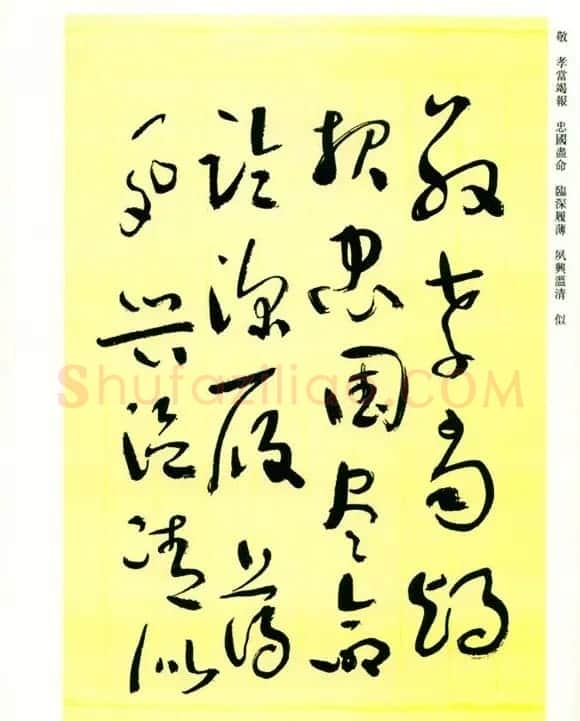 敬 孝當竭報 忠國盡命 臨深履薄 夙興溫清 似
敬孝當竭
報忠國盡命
臨深履薄
夙興溫清似
Shufaziliao.COM